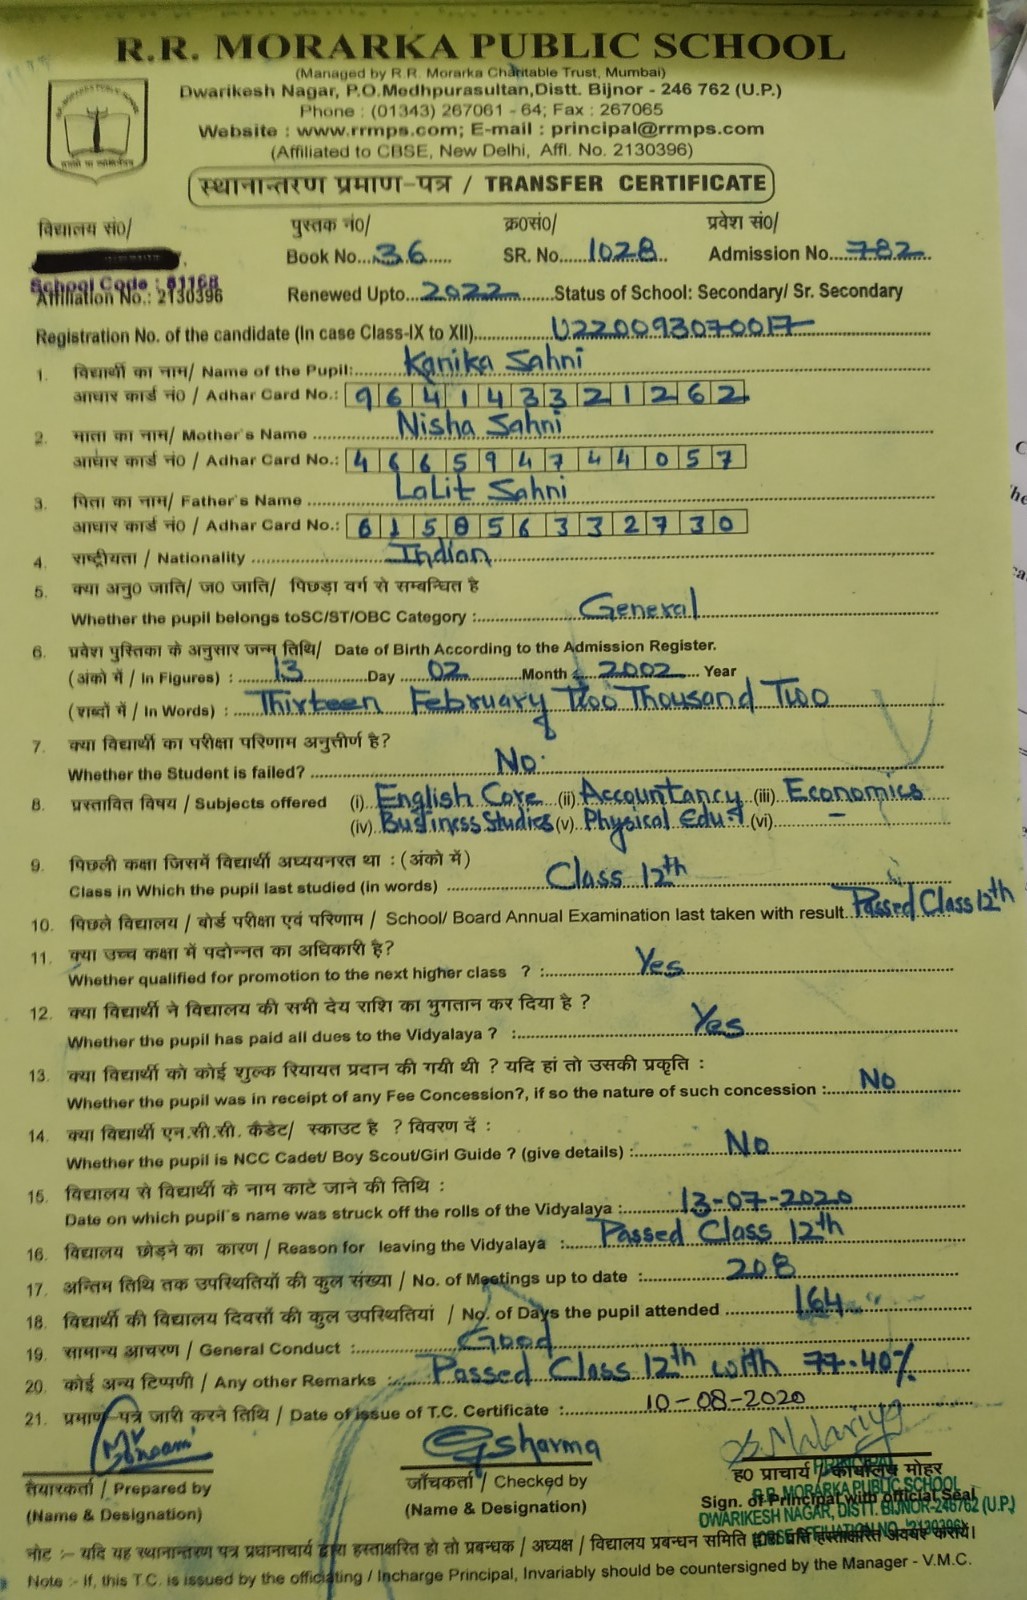 R.R. MORARKA PUBLIC SCHOOL
(Managed by R.R. Morarka Charitable Trust, Mumbai)
Dwarikesh Nagar, P.O.Medhpurasultan,Distt. Bijnor - 246 762 (U.P.)
Phone : (01343) 267061 - 64; Fax : 267065
Website : www.rrmps.com; E-mail : principal@rrmps.com
(Affiliated to CBSE, New Delhi, Affl. No. 2130396)
स्थानान्तरण प्रमाण-पत्र / TRANSFER CERTIFICATE
विद्यालय सं0/ पुस्तक नं0/ क्र0सं0/ प्रवेश सं0/
Book No....36..... SR. No.....1028.. Admission No...782...
School Code : 81168
Affiliation No.: 2130396 Renewed Upto...2022......Status of School: Secondary/ Sr. Secondary
Registration No. of the candidate (In case Class-IX to XII)......U220093070017......
1. विद्यार्थी का नाम/ Name of the Pupil:......Kanika Sahni......
आधार कार्ड नं0 / Adhar Card No.: 964143321262
2. माता का नाम/ Mother's Name ......Nisha Sahni......
आधार कार्ड नं0 / Adhar Card No.: 466594744057
3. पिता का नाम/ Father's Name ......Lalit Sahni......
आधार कार्ड नं0 / Adhar Card No.: 615856332730
4. राष्ट्रीयता / Nationality ......Indian......
5. क्या अनु0 जाति/ ज0 जाति/ पिछड़ा वर्ग से सम्बन्धित है
Whether the pupil belongs toSC/ST/OBC Category :......General......
6. प्रवेश पुस्तिका के अनुसार जन्म तिथि/ Date of Birth According to the Admission Register.
(अंको में / In Figures) : ......13......Day ...02......Month :...2002... Year
(शब्दों में / In Words) : ...Thirteen February Two Thousand Two
7. क्या विद्यार्थी का परीक्षा परिणाम अनुत्तीर्ण है?
Whether the Student is failed? ......No......
8. प्रस्तावित विषय / Subjects offered (i)..English Core..(ii)..Accountancy..(iii)..Economics...
(iv)..Business Studies(v)..Physical Edu...(vi)...-...
9. पिछली कक्षा जिसमें विद्यार्थी अध्ययनरत था : (अंको में)
Class in Which the pupil last studied (in words) ......Class 12th......
10. पिछले विद्यालय / बोर्ड परीक्षा एवं परिणाम / School/ Board Annual Examination last taken with result..Passed Class 12th
11. क्या उच्च कक्षा में पदोन्नत का अधिकारी है?
Whether qualified for promotion to the next higher class ? :......Yes......
12. क्या विद्यार्थी ने विद्यालय की सभी देय राशि का भुगतान कर दिया है ?
Whether the pupil has paid all dues to the Vidyalaya ? :......Yes......
13. क्या विद्यार्थी को कोई शुल्क रियायत प्रदान की गयी थी ? यदि हां तो उसकी प्रकृति :
Whether the pupil was in receipt of any Fee Concession?, if so the nature of such concession :...No......
14. क्या विद्यार्थी एन.सी.सी. कैडेट/ स्काउट है ? विवरण दें :
Whether the pupil is NCC Cadet/ Boy Scout/Girl Guide ? (give details) :......No......
15. विद्यालय से विद्यार्थी के नाम काटे जाने की तिथि :
Date on which pupil's name was struck off the rolls of the Vidyalaya :......13-07-2020......
16. विद्यालय छोड़ने का कारण / Reason for leaving the Vidyalaya :...Passed Class 12th
17. अन्तिम तिथि तक उपस्थितियों की कुल संख्या / No. of Meetings up to date :......208......
18. विद्यार्थी की विद्यालय दिवसों की कुल उपस्थितियां / No. of Days the pupil attended ......164......
19. सामान्य आचरण / General Conduct :......Good......
20. कोई अन्य टिप्पणी / Any other Remarks :...Passed Class 12th with 77.40%
21. प्रमाण-पत्र जारी करने तिथि / Date of issue of T.C. Certificate :......10-08-2020......
Gsharma
तैयारकर्ता / Prepared by जाँचकर्ता / Checked by ह0 प्राचार्य / कार्यालय मोहर
(Name & Designation) (Name & Designation) Sign. of Principal with official Seal
PRINCIPAL
R.R. MORARKA PUBLIC SCHOOL
DWARIKESH NAGAR, DISTT. BIJNOR-246762 (U.P.)
(CBSE AFFILIATION NO. '2130396)
नोट :- यदि यह स्थानान्तरण पत्र प्रधानाचार्य द्वारा हस्ताक्षरित हो तो प्रबन्धक / अध्यक्ष / विद्यालय प्रबन्धन समिति हस्ताक्षरित अवश्य करायें।
Note :- If, this T.C. is issued by the officiating / Incharge Principal, Invariably should be countersigned by the Manager - V.M.C.